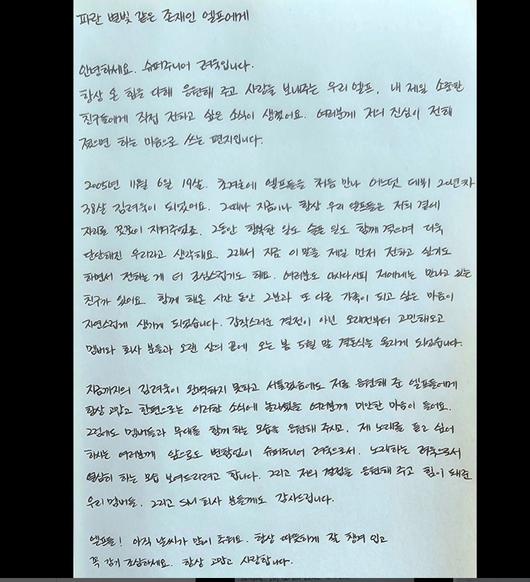 파란 별빛 같은 존재인 엘프에게
안녕하세요. 슈퍼주니어 려욱입니다.
항상 온 힘을 다해 응원해 주고 사랑을 보내주는 우리 엘프, 내 제일 소중한
친구들에게 직접 전하고 싶은 소식이 생겼어요. 여러분께 저의 진심이 전해
졌으면 하는 마음으로 쓰는 편지입니다.
2005년 11월 6일 19살. 초겨울에 엘프들을 처음 만나 어느덧 데뷔 20년차
38살 김려욱이 되었어요. 그때나 지금이나 항상 우리 엘프들은 저의 곁에
자리를 꼿꼿이 지켜주었죠. 그동안 행복한 일도 슬픈 일도 함께 겪으며 더욱
단단해진 우리라고 생각해요. 그래서 지금 이 말을 제일 먼저 전하고 싶기도
하면서 전하는 게 더 조심스럽기도 해요. 여러분도 아시다시피 저에게는 만나고 있는
친구가 있어요. 함께 해온 시간 동안 그분과 또 다른 가족이 되고 싶은 마음이
자연스럽게 생기게 되었습니다. 갑작스러운 결정이 아닌 오래전부터 고민해오고
멤버와 회사 분들과 오랜 상의 끝에 오는 봄 5월 말 결혼식을 올리게 되었습니다.
지금까지의 김려욱이 완벽하지 못하고 서툴렀음에도 저를 응원해 준 엘프들에게
항상 고맙고 한편으로는 이러한 소식에 놀라셨을 여러분께 미안한 마음이 들어요.
그럼에도 멤버들과 무대를 함께 하는 모습을 응원해 주시고. 제 노래를 듣고 싶어
하시는 여러분께 앞으로도 변함없이 슈퍼주니어 려욱으로서, 노래하는 려욱으로서
열심히 하는 모습 보여드리려고 합니다. 그리고 저의 결정을 응원해 주고 힘이 돼준
우리 멤버들, 그리고 SM 회사 분들께도 감사드립니다.
엘프들! 아직 날씨가 많이 추워요. 항상 따뜻하게 잘 챙겨 입고
꼭 감기 조심하세요. 항상 고맙고 사랑합니다.